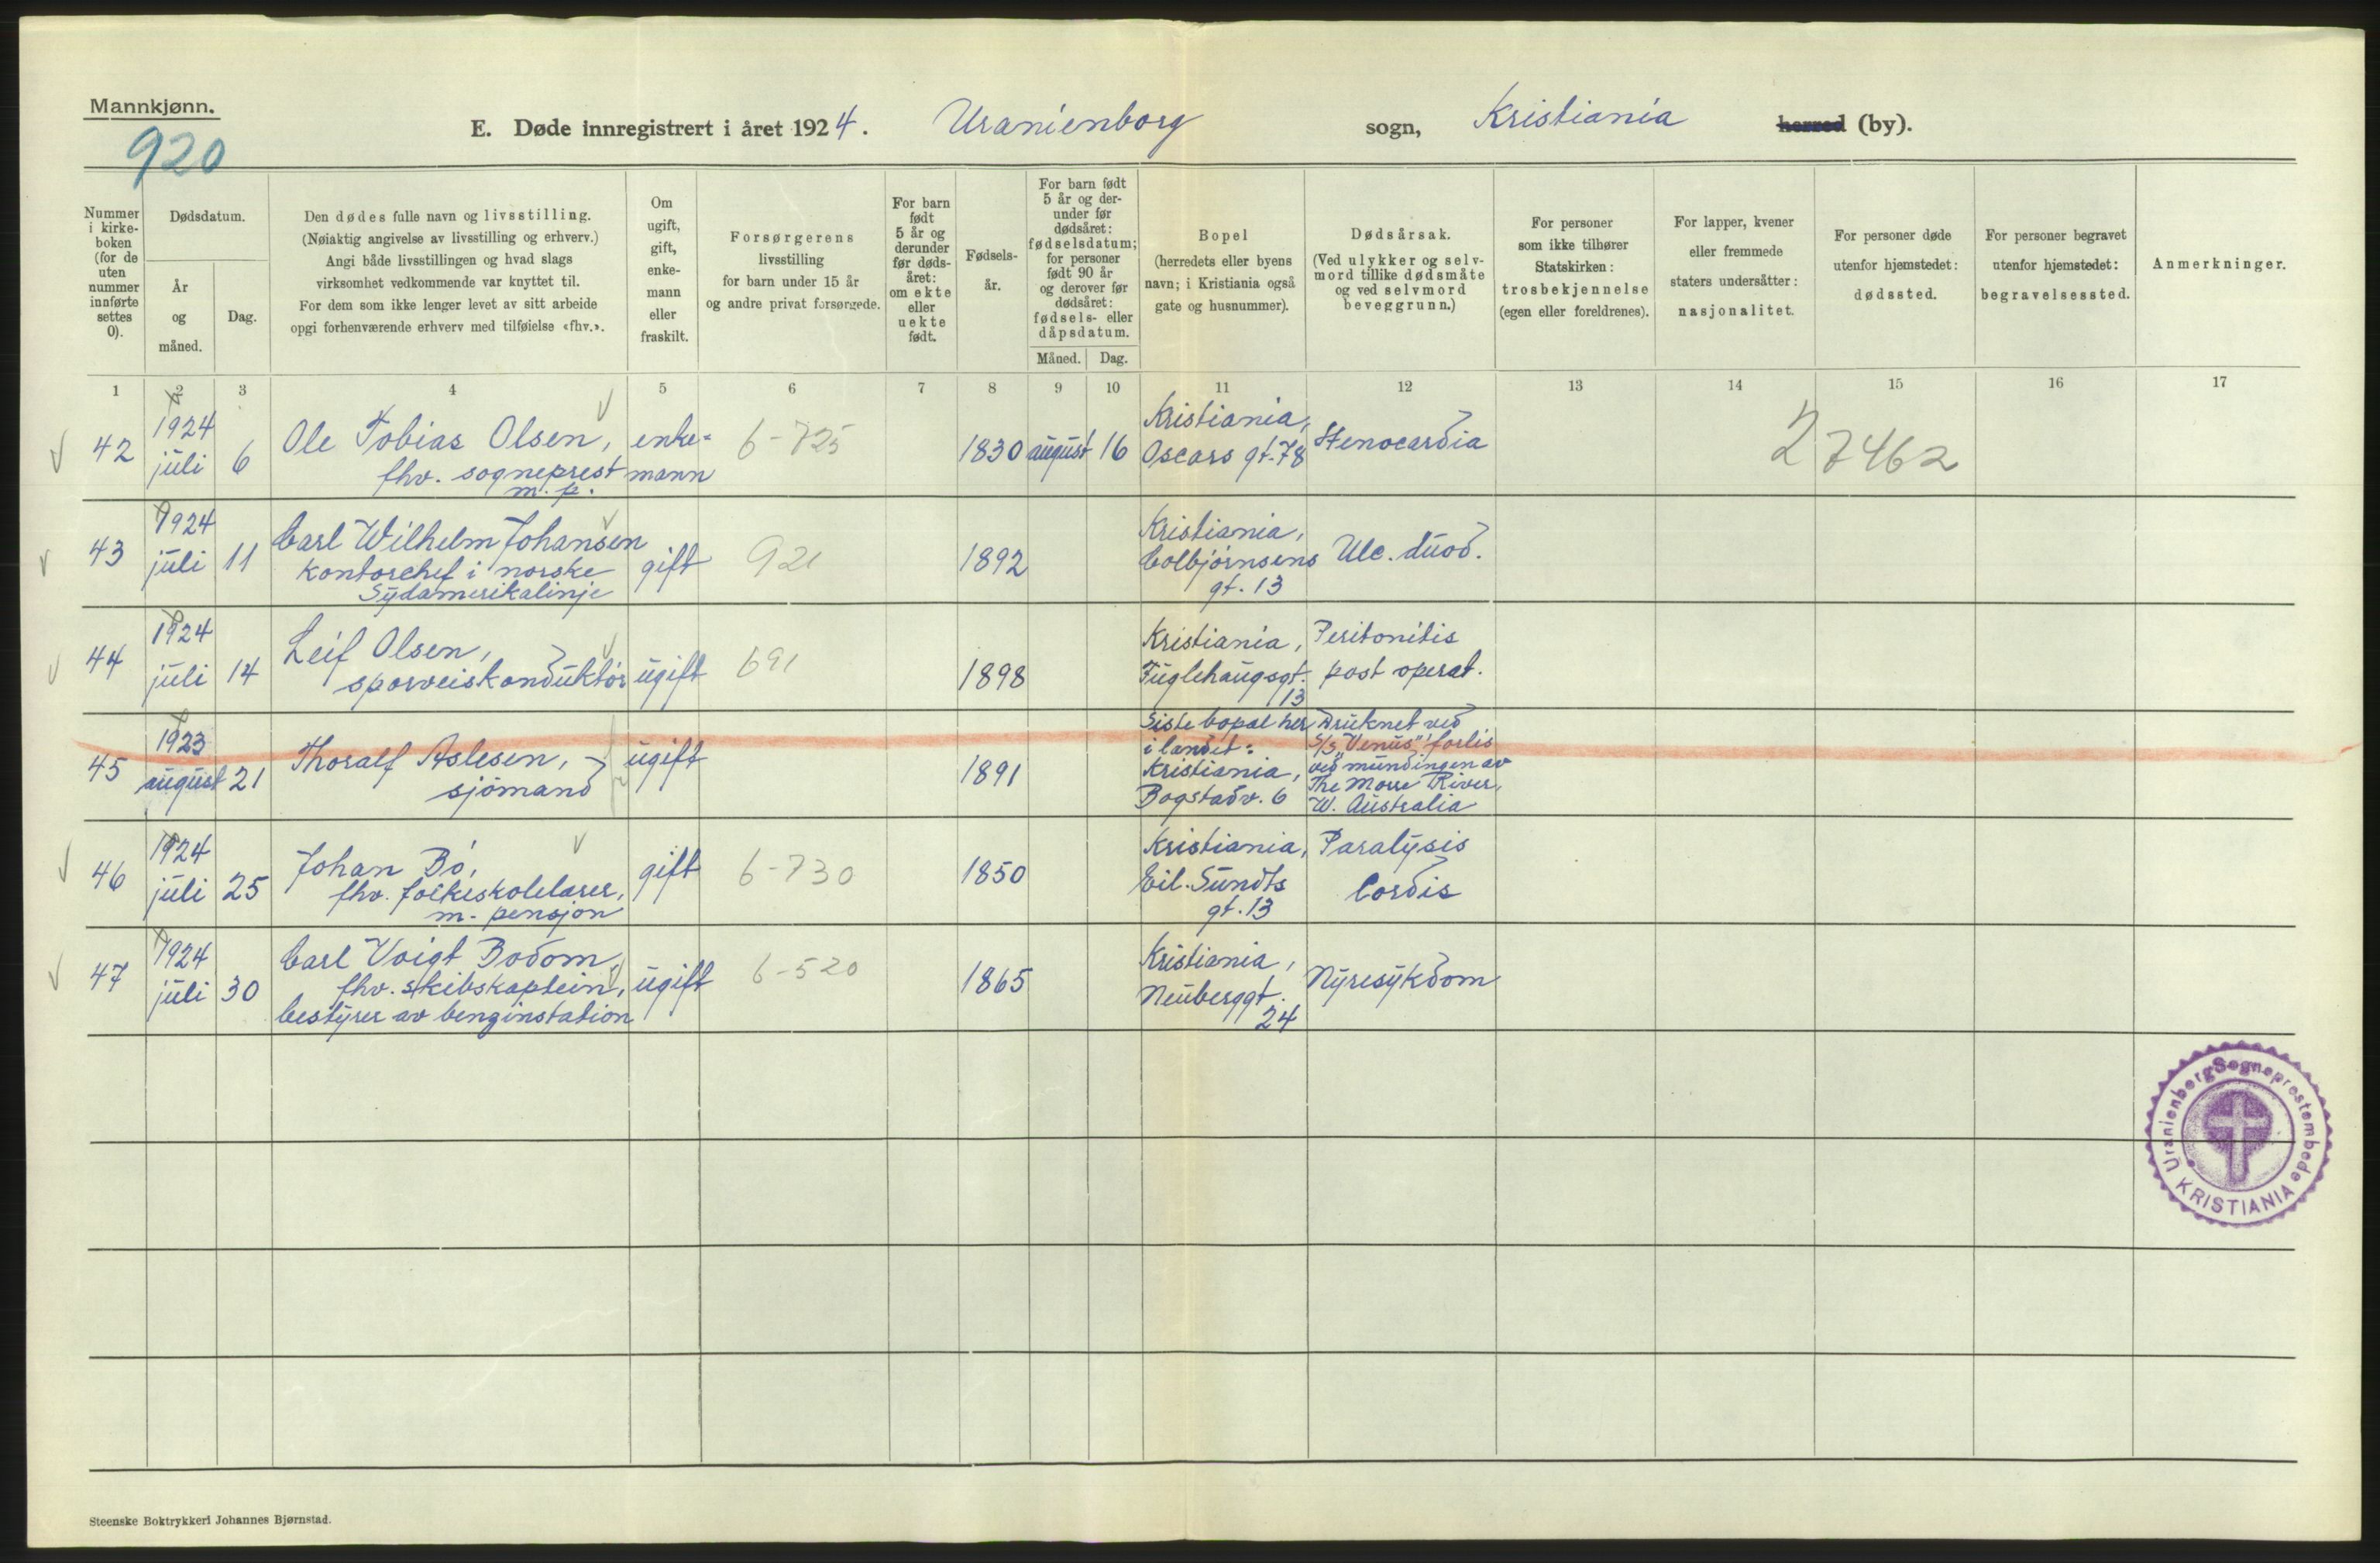 Mannkjønn.
920
E. Døde innregistrert i året 1924. Uranienborg sogn, Kristiania herred (by).
Nummer
i kirke-
boken
(for de
uten
nummer
innførte
settes
0).
Dødsdatum.
År
og
måned.
Dag.
Den dødes fulle navn og livsstilling.
(Nøiaktig angivelse av livsstilling og erhverv.)
Angi både livsstillingen og hvad slags
virksomhet vedkommende var knyttet til.
For dem som ikke lenger levet av sitt arbeide
opgi forhenværende erhverv med tilføielse «fhv.».
Om
ugift,
gift,
enke-
mann
eller
fraskilt.
Forsørgerens
livsstilling
for barn under 15 år
og andre privat forsørgede.
For barn
født
5 år og
derunder
før døds-
året:
om ekte
eller
uekte
født.
Fødsels-
år.
For barn født
5 år og der-
under før
dødsåret:
fødselsdatum;
for personer
født 90 år
og derover før
dødsåret:
fødsels- eller
dåpsdatum.
Måned. Dag.
Bopel
(herredets eller byens
navn; i Kristiania også
gate og husnummer).
Dødsårsak.
(Ved ulykker og selv-
mord tillike dødsmåte
og ved selvmord
beveggrunn.)
For personer
som ikke tilhører
Statskirken:
trosbekjennelse
(egen eller foreldrenes).
For lapper, kvener
eller fremmede
staters undersåtter:
nasjonalitet.
For personer døde
utenfor hjemstedet:
dødssted.
For personer begravet
utenfor hjemstedet:
begravelsessted.
Anmerkninger.
1 2 3 4 5 6 7 8 9 10 11 12 13 14 15 16 17
42
1924
juli 6
Ole Tobias Olsen,
fhv. sogneprest
m. p.
enke-
mann
6-725
1830 august 16
Kristiania,
Oscars gt. 78
Stenocardia
27462
43
1924
juli 11
Carl Wilhelm Johansen
kontorchef i norske
Sydamerikalinje
gift
921
1892
Kristiania,
Colbjørnsens
gt. 13
Ulc. duod.
44
1924
juli 14
Leif Olsen,
sporveiskonduktør
ugift
691
1898
Kristiania,
Fuglehaugsgt.
13
Peritonitis
post operat.
45
1923
august 21
Thoralf Aslesen,
sjømand
ugift
1891
Siste bopæl her
i landet:
Kristiania,
Bogstadv. 6
Druknet ved
S/S "Venus" forlis
ved mundingen av
The Morre River,
W. Australia
46
1924
juli 25
Johan Bö,
fhv. folkeskolelærer,
m. pensjon
gift
6-730
1850
Kristiania,
Eil. Sundts
gt. 13
Paralysis
Cordis
47
1924
juli 30
Carl Voigt Bodom,
fhv. skibskaptein,
bestyrer av benzinstation
ugift
6-520
1865
Kristiania,
Neuberggt.
24
Nyresykdom
Uranienborg Sogneprestembede
KRISTIANIA
Steenske Boktrykkeri Johannes Bjørnstad.